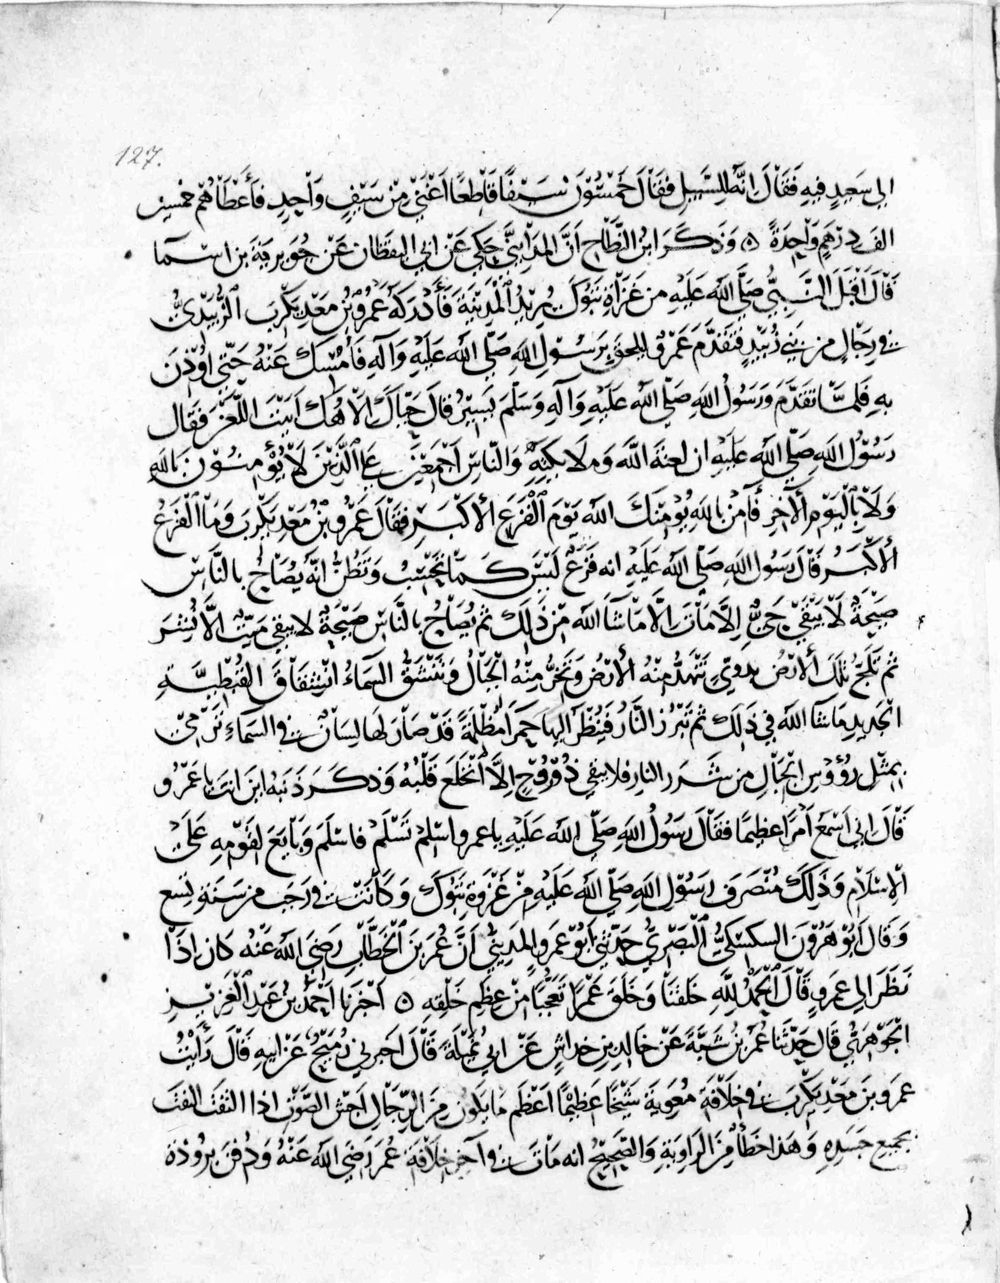 127.
الى سعيد فيه فَقَالَ انَّه لِلسَّبِيلِ فقَالَ خَمْسُوْنَ سَيْفًا قَاطِعًا أَغْنَى مِنْ سَيْفٍ وَاْحِدٍ فأَعْطَاهُم خمسين
الف دِرْهَمٍ وَاْحِدَةً ۞ وَذَكَرَ ابنُ النَّطَّاح أَنَّ المَدَائِنيَّ حَكَى عَن ابى اليقظان عَنْ جُوَيرِيَةَ بن اسْمآ
قَالَ اقْبَلَ النَّبِىُّ صَلَّى اللهُ عَلَيْهِ من غَزَاةِ تَبُوْكَ يُرِيْدُ المَدِينَةَ فَأَدْرَكَهُ عَمْرُو بْنُ مَعْدِيكَرِبَ الزُّبَيْدىُّ
فى رِجَالٍ من بَنى زُبَيْدٍ فَتَقَدَّمَ عَمْرٌو لِيلحقَ بِرَسُوْلِ اللهِ صَلّى اللهُ عَلَيْهِ وَآلهِ فَأَمْسَكَ عَنْهُ حَتّى اوْذِنَ
بهِ فَلَمَّا تَقَدَّمَ وَرَسُولُ اللهِ صَلّى اللهُ عَلَيْهِ وَآلهِ وَسَلَّمَ يَسِيْرُ قَالَ حَيَّاكَ الاهُكَ ابَيْتَ اللَّعْنَ فَقَال
رَسُوْلُ اللهِ صَلّى اللهُ عَلَيْهِ ان لعنَةَ اللهِ وَمَلَائِكَتِهِ وَالنّاسِ اجْمَعِيْنَ عَلَى الَّذِيْنَ لَا يُؤْمِنُوْنَ بِاللهِ
وَلَا بِالْيَوْمِ الآخِرِ فَآمِنْ بِاللهِ يُوْمِنْكَ اللهُ يَوْمَ الْفَزَعِ الأَكْبَرِ فقَالَ عَمْرُو بْنُ مَعْدِيكَرِبَ وَمَا الْفَزَعُ
الأَكْبَرُ قَالَ رَسُولُ اللهِ صَلّى اللهُ عَلَيْهِ انه فَزَعٌ لَيْسَ كَمَا تَحْسِبُ وَتَظُنُّ انَّه يُصَاحُ بِالنَّاسِ
صَيْحَةً لَا يَبْقَى حَىٌّ إِلَّا مَاتَ الَّا مَا شَآ اللهُ مِنْ ذَلِكَ ثُمَّ يُصَاحُ بِالنَّاسِ صَيْحَةً لَا يبقى مَيِّتٌ الَّا نُشِرَ
ثم تَلِجُّ تِلْكَ الأَرْضُ بِدَوِىٍّ تَنْهَدُّ مِنْهُ الأَرْضُ وَتَخِرُّ مِنْهُ الْجِبَالُ وَتَنْشَقُّ السَّمَاءُ انْشِقَاقَ القُبْطِيَّةِ
الجَدِيدِ مَا شآ اللهُ في ذَلِكَ ثم تَبْرُزُ النَّارُ فَيُنْظَرُ الَيْهَا حَمْرآ مُظْلِمَةً قَدْ صَارَ لَهَا لِسَانٌ فى السَّمَاءِ تَرْمى
بِمِثْلِ رُؤُوْسِ الْجِبَالِ مِنْ شَرَرِ النارِ فَلَا يبقى ذُوْ رُوْحٍ اِلَّا انْخَلَعَ قَلْبُهُ وَذَكَرَ ذَنبَهُ ايْنَ انتَ يا عَمْرُو
قَالَ انى اسْمَعُ أَمْرًا عظيمًا فقَالَ رَسُولُ اللهِ صَلّى اللهُ عَلَيْهِ يا عمرو اسْلِمْ تَسْلَمْ فاسْلَمَ وَبَايَعَ لِقَوْمِهِ عَلَى
الاسْلَامِ وَذَلِكَ مُنْصَرَفَ رَسُوْلِ اللهِ صَلّى اللهُ عَلَيْهِ مِنْ غَزْوَةِ تَبُوْكَ وَكَانَتْ فى رَجَبَ من سَنَةِ تسع
وَقَالَ أَبُوْ هَرُوْنَ السكسكىُّ البَصْرىُّ حَدَّثَنِى أَبُوْ عَمْرٍو المَدِينىُّ أَنَّ عُمَرَ بنَ الخَطَّابِ رَضِىَ اللهُ عَنْهُ كَانَ اذَا
نَظَرَ الى عَمْرٍو قَالَ الْحَمْدُ لِلّهِ خَلَقَنَا وَخَلَقَ عَمْرًا تَعَجُّبًا مِنْ عِظَمِ خَلْقِهِ ۞ أَخْبَرَنا أَحْمَدُ بْنُ عَبْدِ الْعَزِيْزِ
الجَوْهَرىُّ قَال حَدَّثَنَا عُمَرُ بْنُ شَبَّةَ عَنْ خَالِدِ بنِ خِدَاشٍ عَنْ ابى نُمَيْلَةَ قَالَ اخبرنى رُمَيْحٌ عَنْ ابيهِ قَالَ رَأَيْتُ
عمرَو بنَ مَعْدِيكَرِبَ فى خِلَافَةِ مُعَوِيَةَ شَيْخًا عَظِيمًا اعْظَمَ مَا يَكُونُ مِنَ الرِّجَالِ اجَشَّ الصَّوْتِ اذا الْتَفَتَ الْتَفَتَ
بجميعِ جَسَدِهِ وَهَذَا خَطَأٌ مِنَ الرَّاوِيَةِ وَالصَّحِيْحُ انه مَاتَ فى آخِرِ خِلَافَةِ عُمَرَ رَضِىَ اللهُ عَنْهُ وَدُفِنَ بِرُوْذَةَ